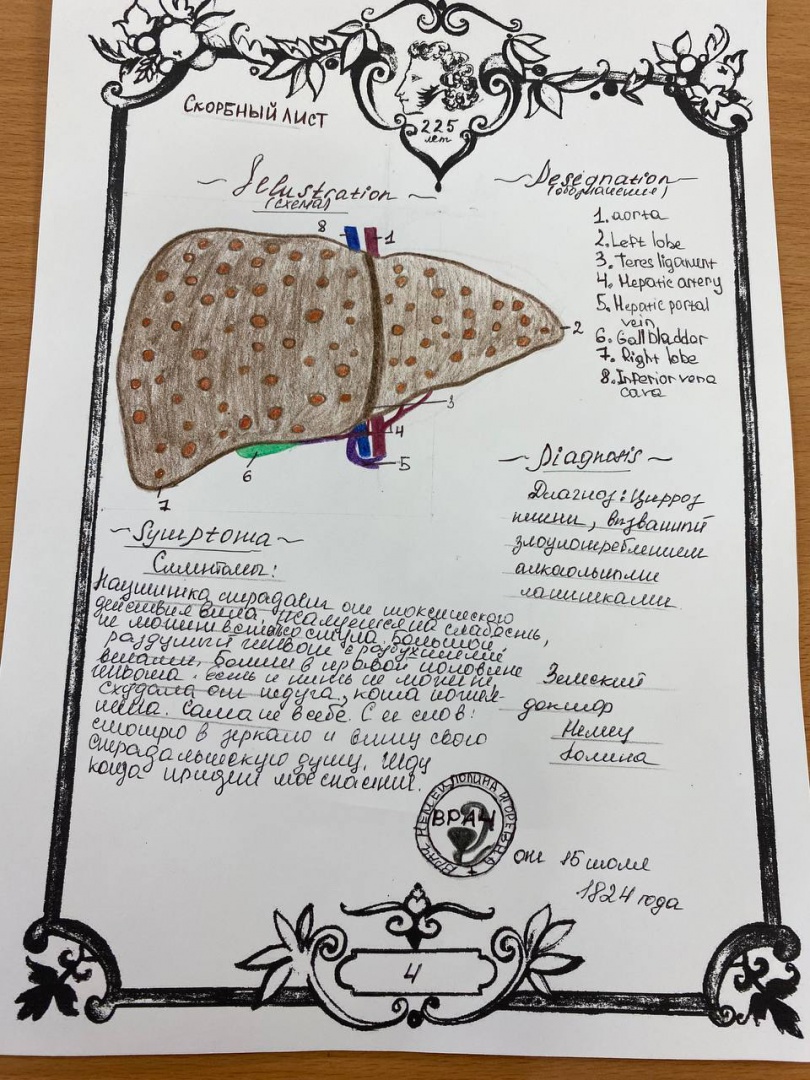 Скорбный лист
225
лет
Illustration
(схема)
Designation
(обозначение)
1. aorta
2. Left lobe
3. Teres ligament
4. Hepatic artery
5. Hepatic portal
vein
6. Gallbladdar
7. Right lobe
8. Inferior vena
cava
8
1
2
3
4
5
6
7
Diagnosis
Диагноз: Цирроз
печени, вызванный
злоупотреблением
алкогольными
напитками
Symptoma
Симптомы:
Пациентка страдает от токсического
действия вина. Жалуется на слабость,
не может встать со стула. Большой
раздутый живот с разбухшими
венами, болит в правой половине
живота. Есть и пить не может
Схуднала от недуга, кожа
Сама не в себе. С ее слов:
смотрю в зеркало и вижу свою
страдальческую душу. Жду
когда придет мое спасение.
Земский
доктор
Немец
Полина
Врач Немец Полина Игоревна
ВРАЧ
от 15 июля
1824 года
4